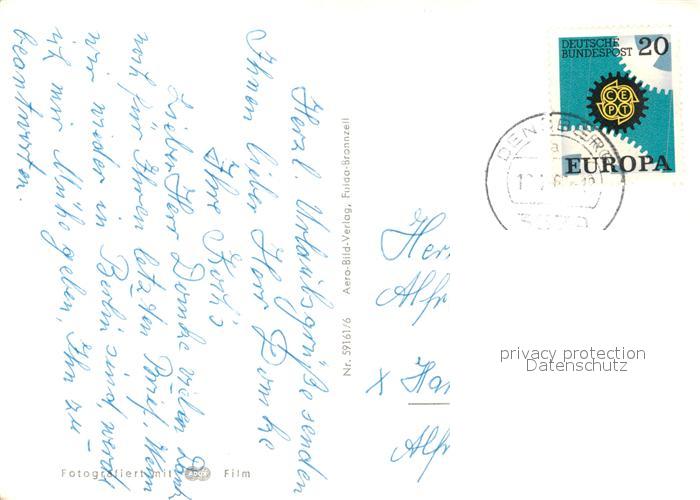 Herzl. Urlaubsgrüße senden
Ihnen lieber Herr Domke
Ihre
Lieber Herr Domke vielen Dank
noch für Ihren letzten Brief. Wenn
wir wieder in Berlin sind, werde
ich mir Mühe geben, Ihn zu
beantworten.
Nr. 59161/6 Aero-Bild-Verlag, Fulda-Bronnzell
Fotografiert mit Agfa Film
DEUTSCHE
BUNDESPOST 20
CEPT
EUROPA
Her
Alfr
x Ha
Alf
privacy protection
Datenschutz